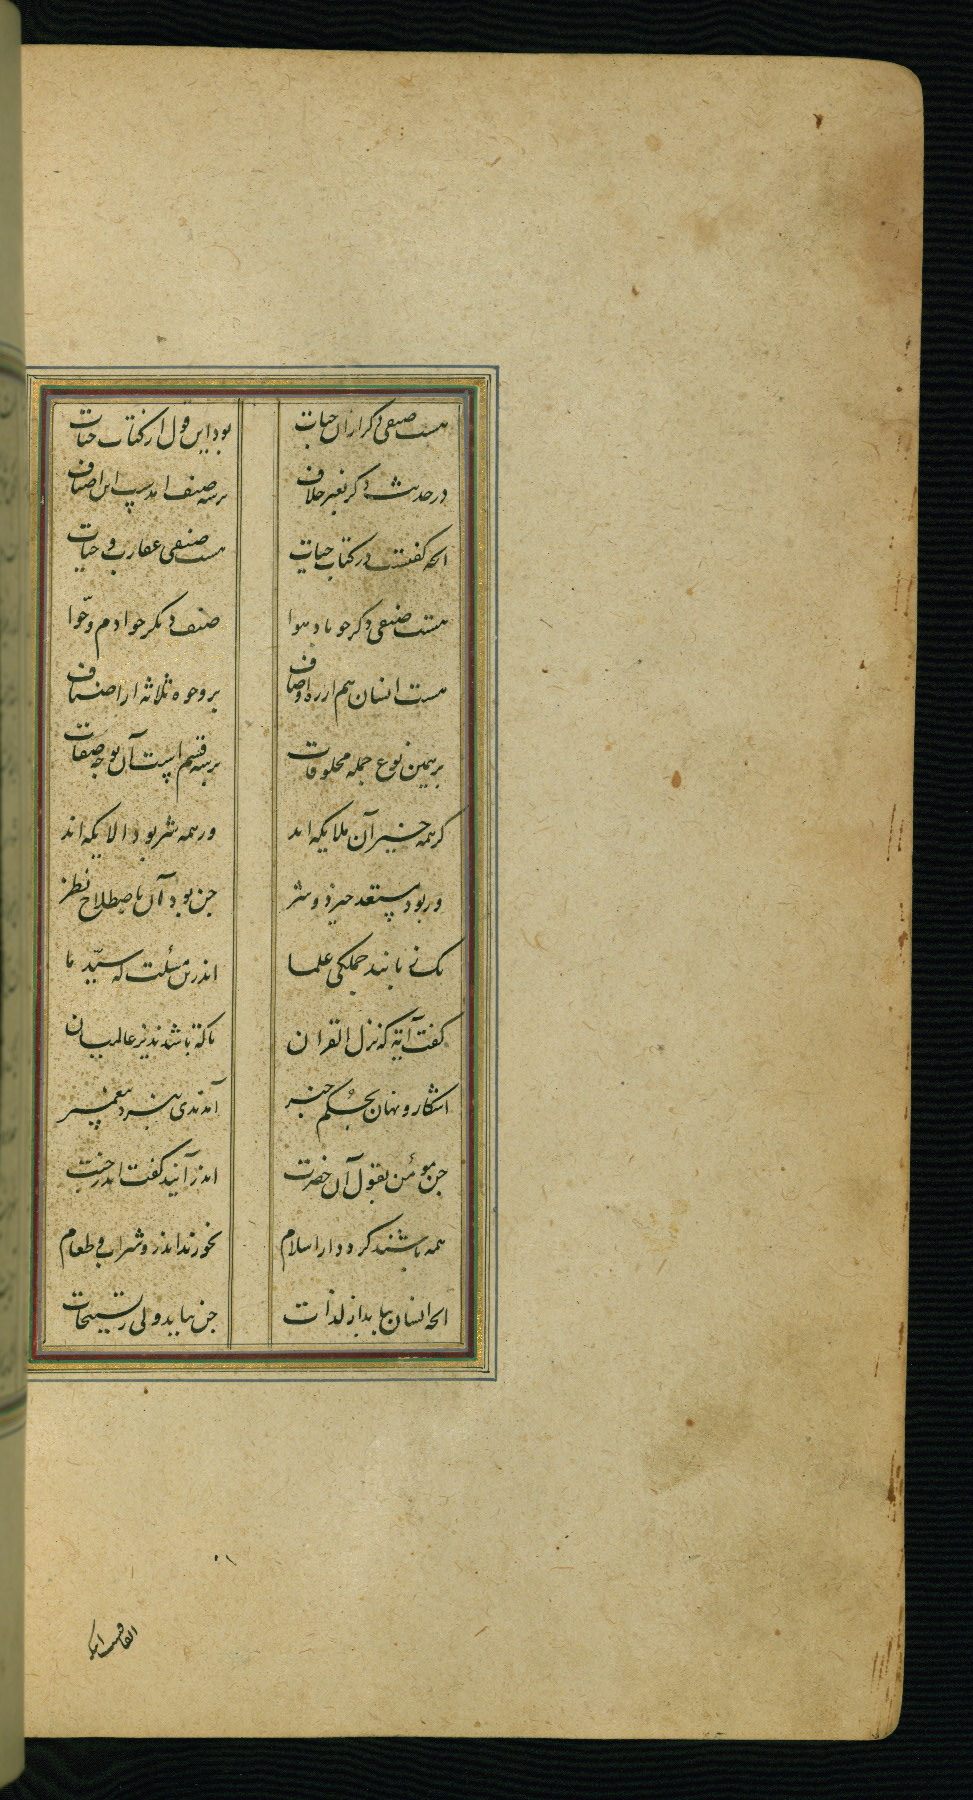 هست صنفی دکر ازان حیات بود این قول از کتاب حیات
در حدیث دکر بغیر خلاف بر سه صنف امد پس این اصناف
انکه کفتست در کتاب حیات هست صنفی عقارب و حیات
هست صنفی دکر جو باد هوا صنف دیکر جو ادم و حوا
هست انسان هم از ره اوصاف بر وجوه ثلاثه از اصناف
بر همین نوع جمله مخلوقات بر سه قسم است آن بوجه صفات
کر همه خیر آن ملایکه اند ور همه شر بود الایکه اند
ور بود مستعد خیر و شر جن بود آن باصطلاح نظر
یک نیابند جملکی علما اندرین مسئلت که سید ما
کفت آیة که نزل القران تا که باشد نذیر عالمیان
اشکار و نهان بحکم خبر آمدندی بنزد پیغمبر
جن مؤمن بقول آن حضرت اندر آیند کفت اندر جنت
همه باشند کرد دار اسلام نخورند اندرو شراب و طعام
انکه انسان بیابد از لذات جن بیابد ولی ز تسبیحات